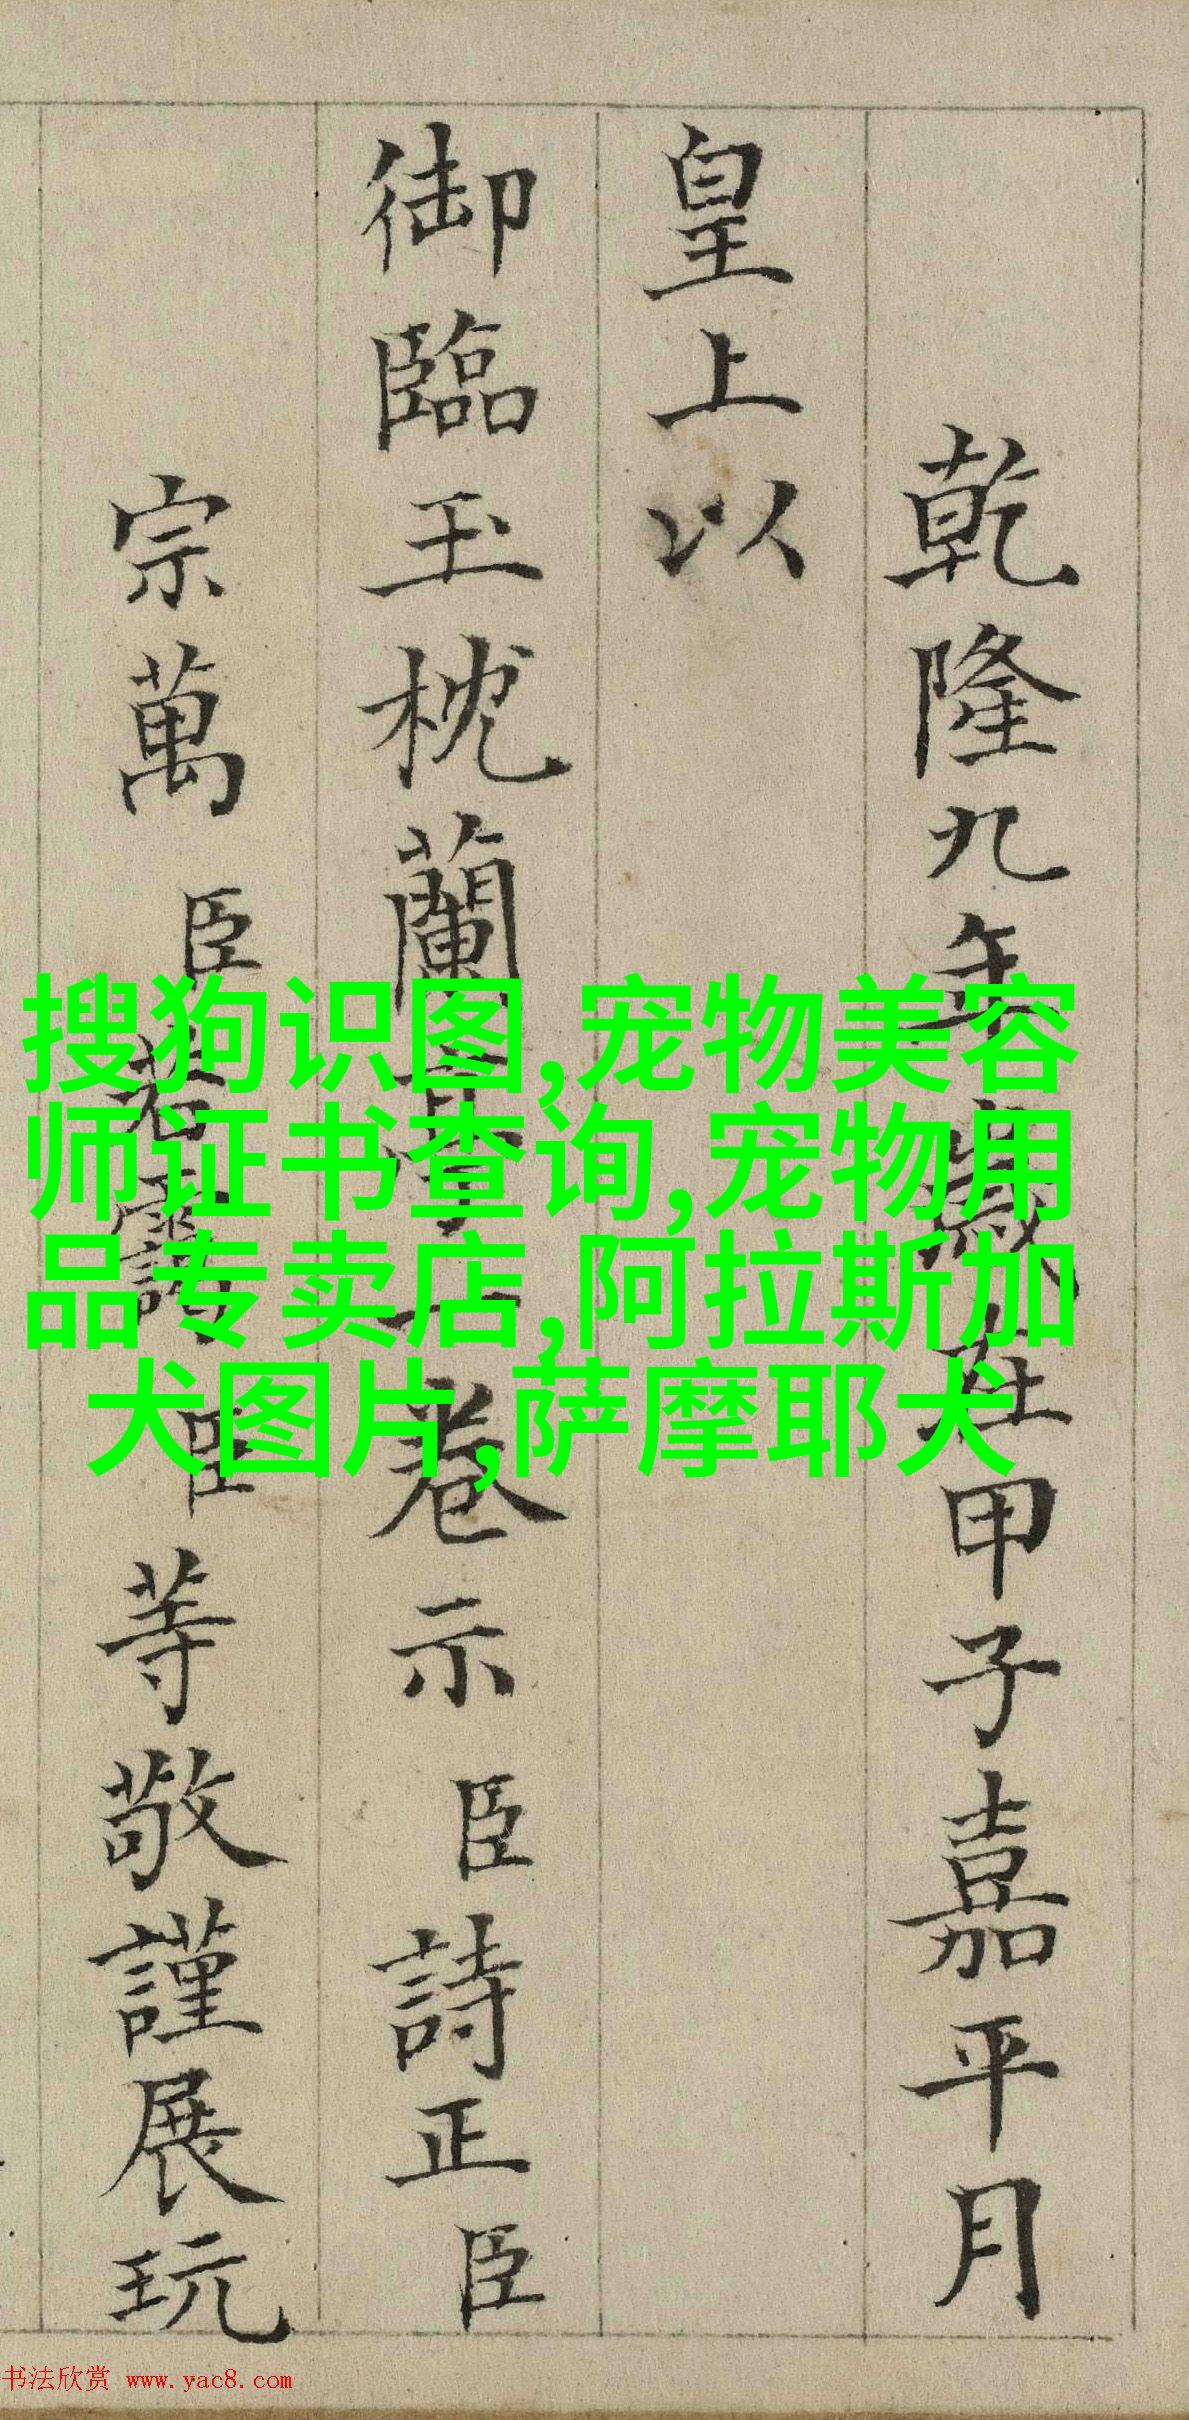 乾隆九年歳在甲子嘉平月
皇上以
御臨玉枕蘭亭一卷示臣詩正臣
宗萬臣若靄臣等敬謹展玩
搜狗识图,宠物美容
师证书查询,宠物用
品专卖店,阿拉斯加
犬图片,萨摩耶犬
书法欣赏 www.yac8.com